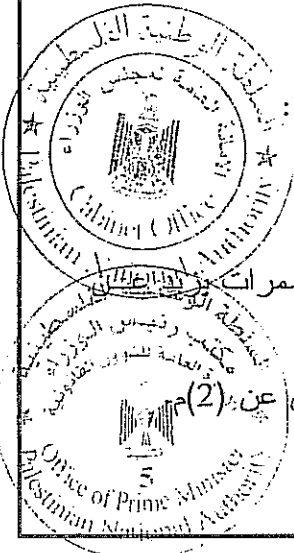 السلطة الوطنية الفلسطينية
الأمانة العامة لمجلس الوزراء
Cabinet Office
Palestinian Authority
ممرات تزيد عن
السلطة الوطنية الفلسطينية
مكتب رئيس الوزراء
العامة للشؤون القانونية
عن (2)م
5
Office of Prime Minister
Palestinian National Authority